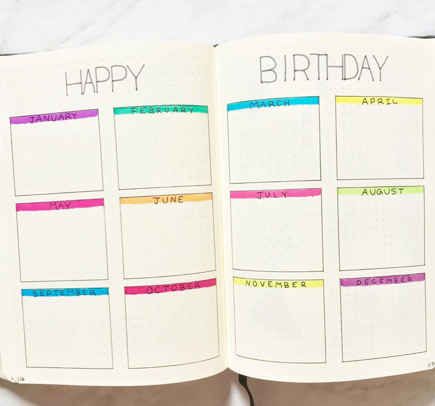 HAPPY BIRTHDAY
JANUARY
FEBRUARY
MARCH
APRIL
MAY
JUNE
JULY
AUGUST
SEPTEMBER
OCTOBER
NOVEMBER
DECEMBER